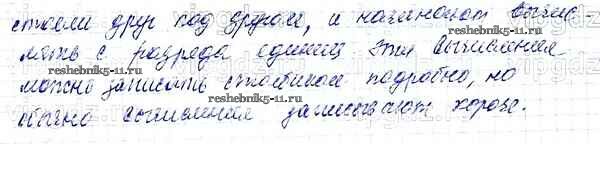 стояли друг под другом, и начинают вычис
лять с разряда единиц эти вычисления
можно записать столбиком подробно, но
обычно вычисления записывают короче.
reshebnik5-11.ru
reshebnik5-11.ru
reshebnik5-11.ru